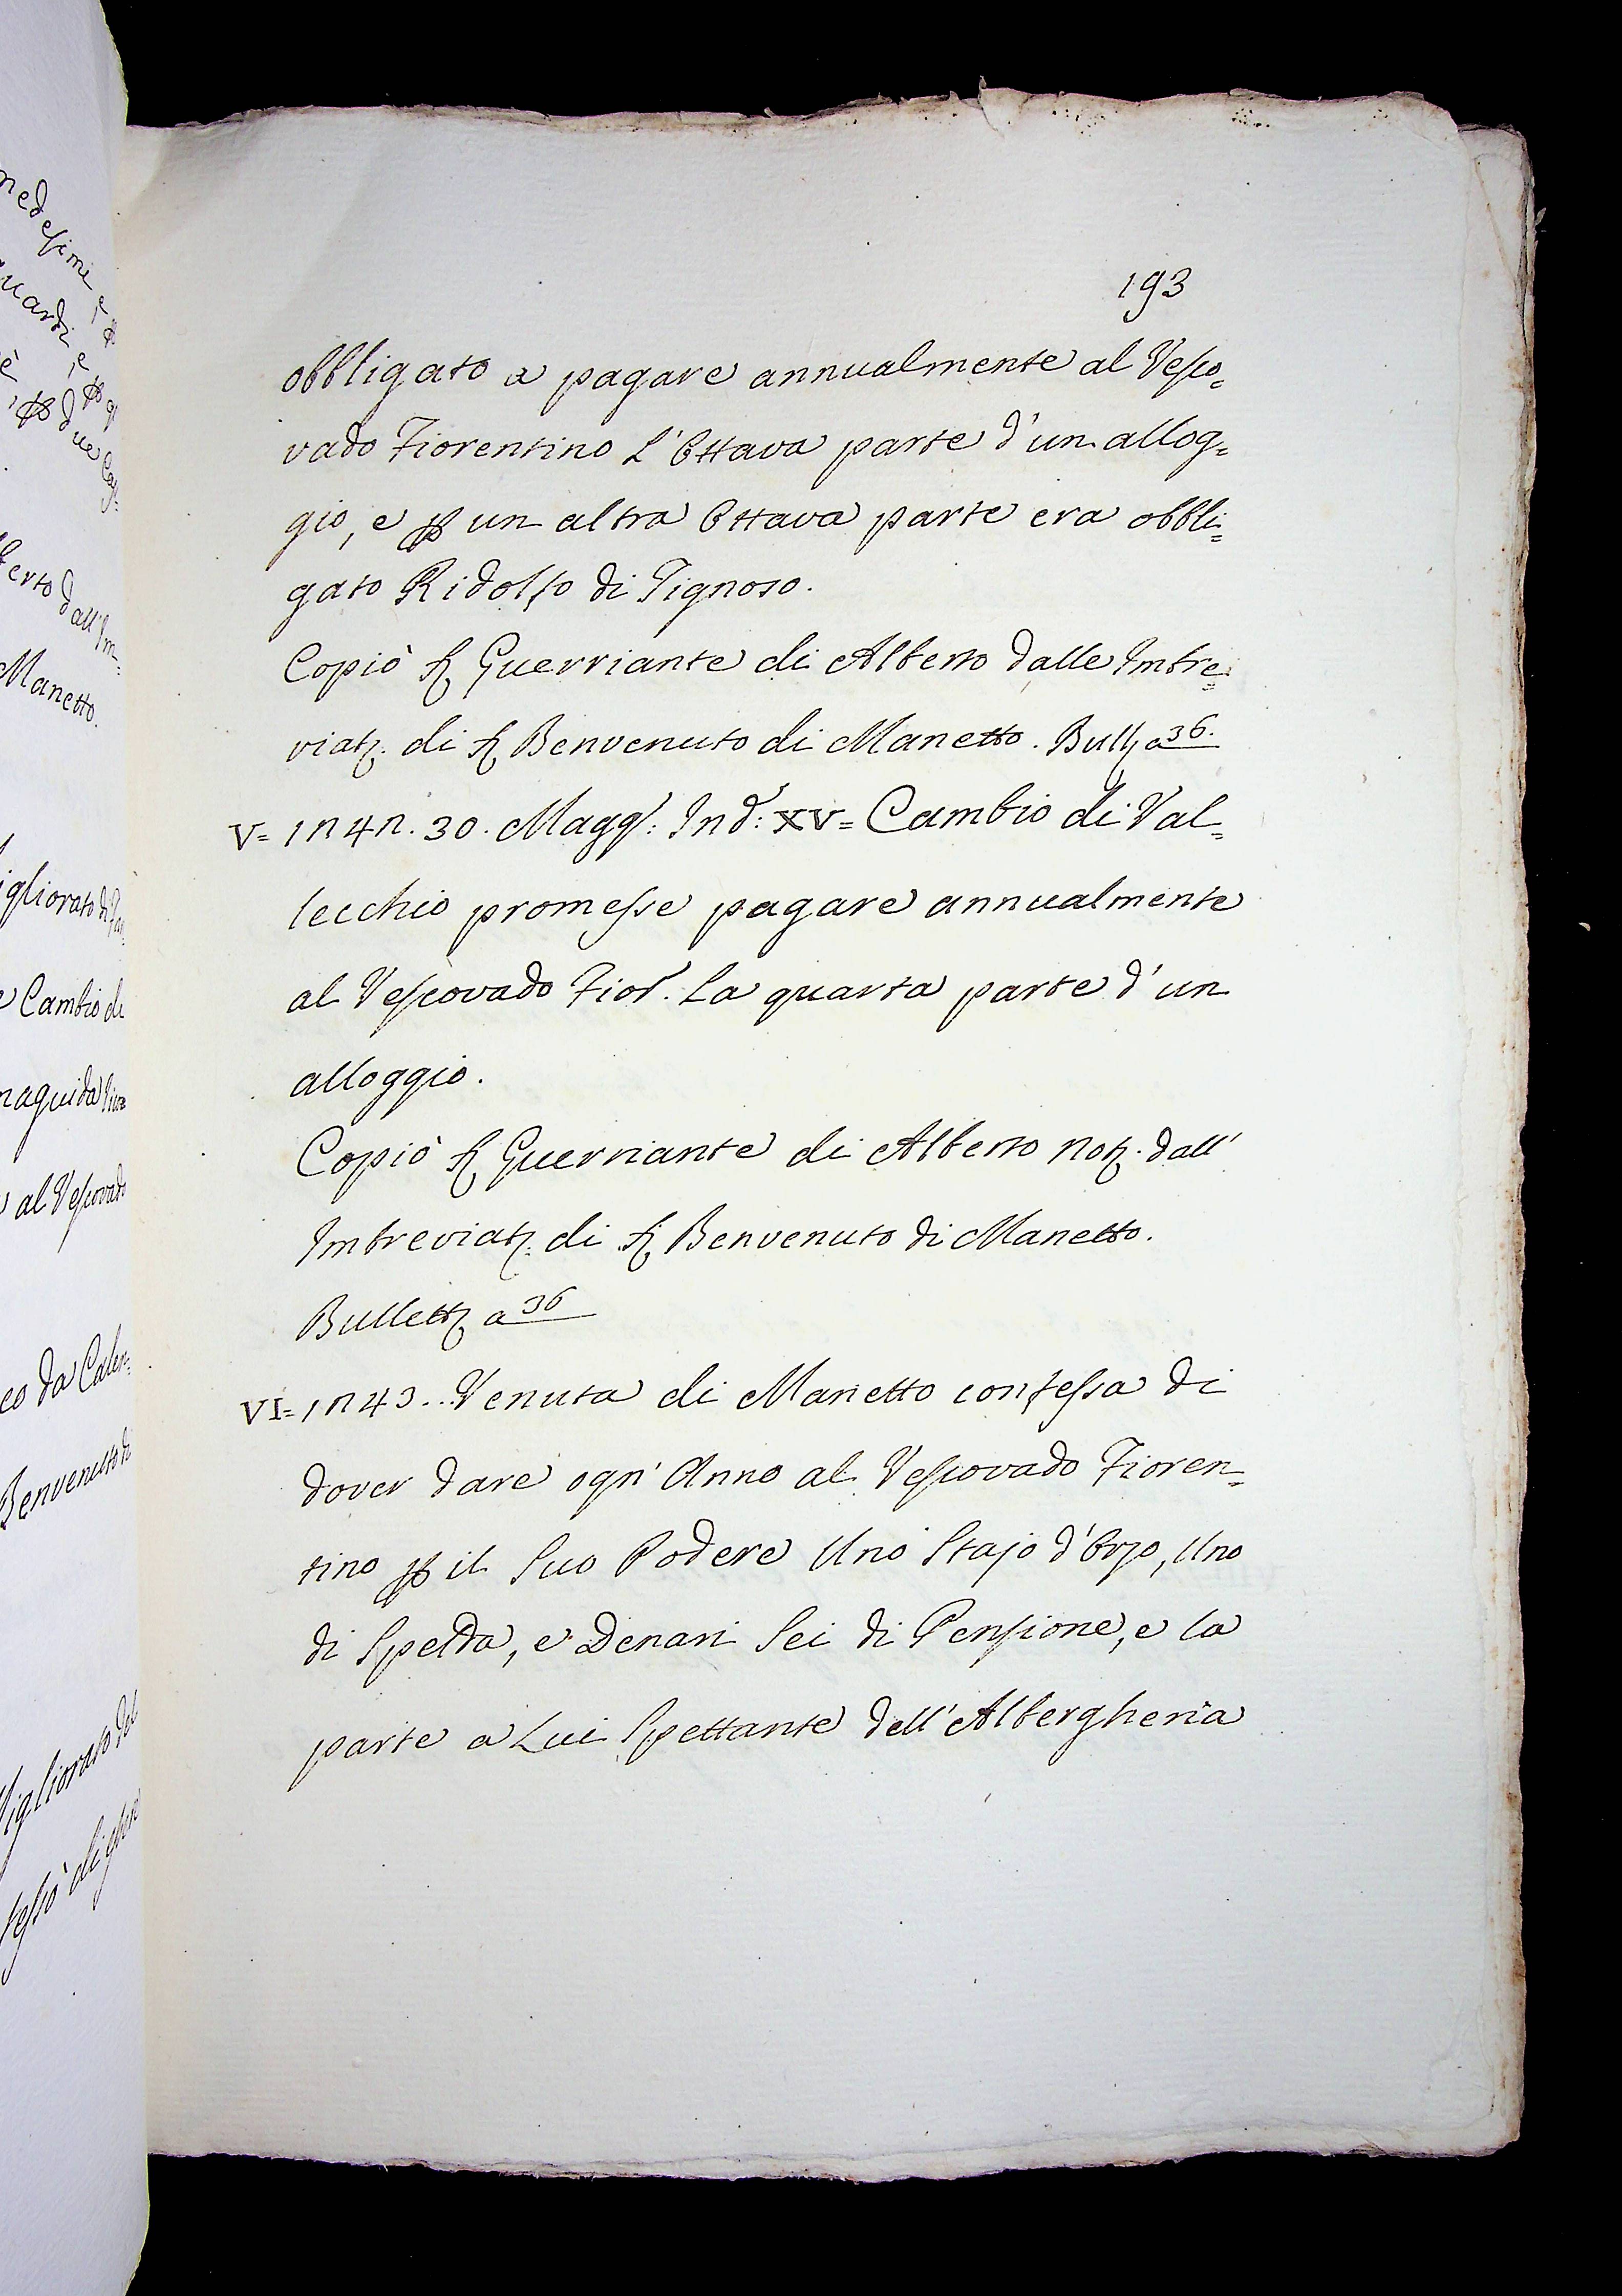 193
obbligato a pagare annualmente al Vesco=
vado Fiorentino L'Ottava parte d'un allog=
gio, e ꝑ un altra Ottava parte era obbli=
gato Ridolfo di Tignoso.
Copiò S. Guerriante di Alberto dalle Imbre=
viatz. di S. Benvenuto di Manetto. Bull. a 36.
V= 1242. 30. Magg.: Ind: XV= Cambio di Val=
lecchio promesse pagare annualmente
al Vescovado Fior. La quarta parte d'un
alloggio.
Copiò S. Guerriante di Alberto Not. dall'
Imbreviatz. di S. Benvenuto di Manetto.
Bullett. a 36
VI= 1243... Venuta di Manetto confessa di
dover dare ogn' Anno al Vescovado Fioren=
tino ꝑ il Suo Podere Uno Stajo d'Orzo, Uno
di Spelda, e Denari Sei di Pensione, e la
parte a Lui Spettante dell'Albergheria
medesimi, e ꝑ
due
dall'Im=
Manetto.
Cambio di
al Vescovado
Benvenuto di